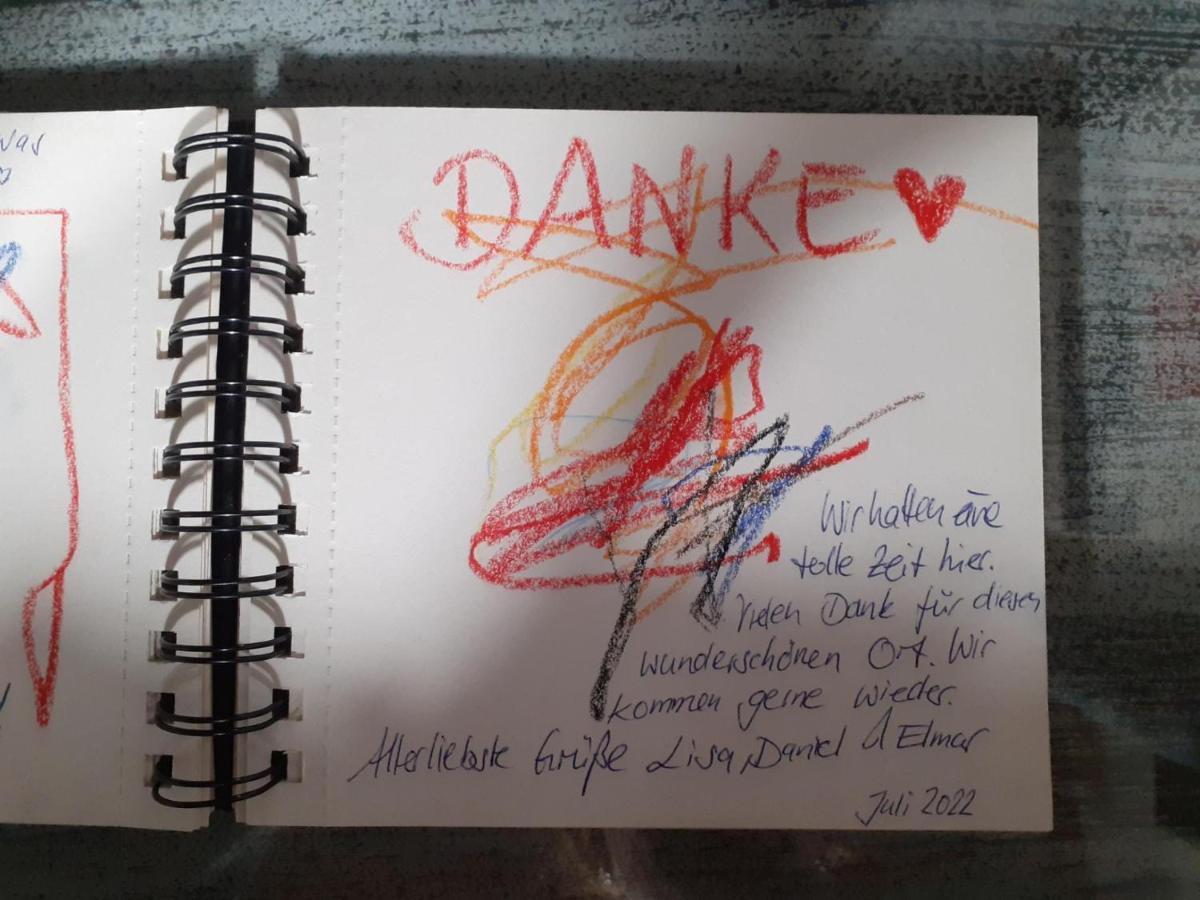 was
DANKE
Wir hatten eine
tolle Zeit hier.
Vielen Dank für diesen
wunderschönen Ort. Wir
kommen gerne wieder.
Allerliebste Grüße Lisa, Daniel & Elmar
Juli 2022